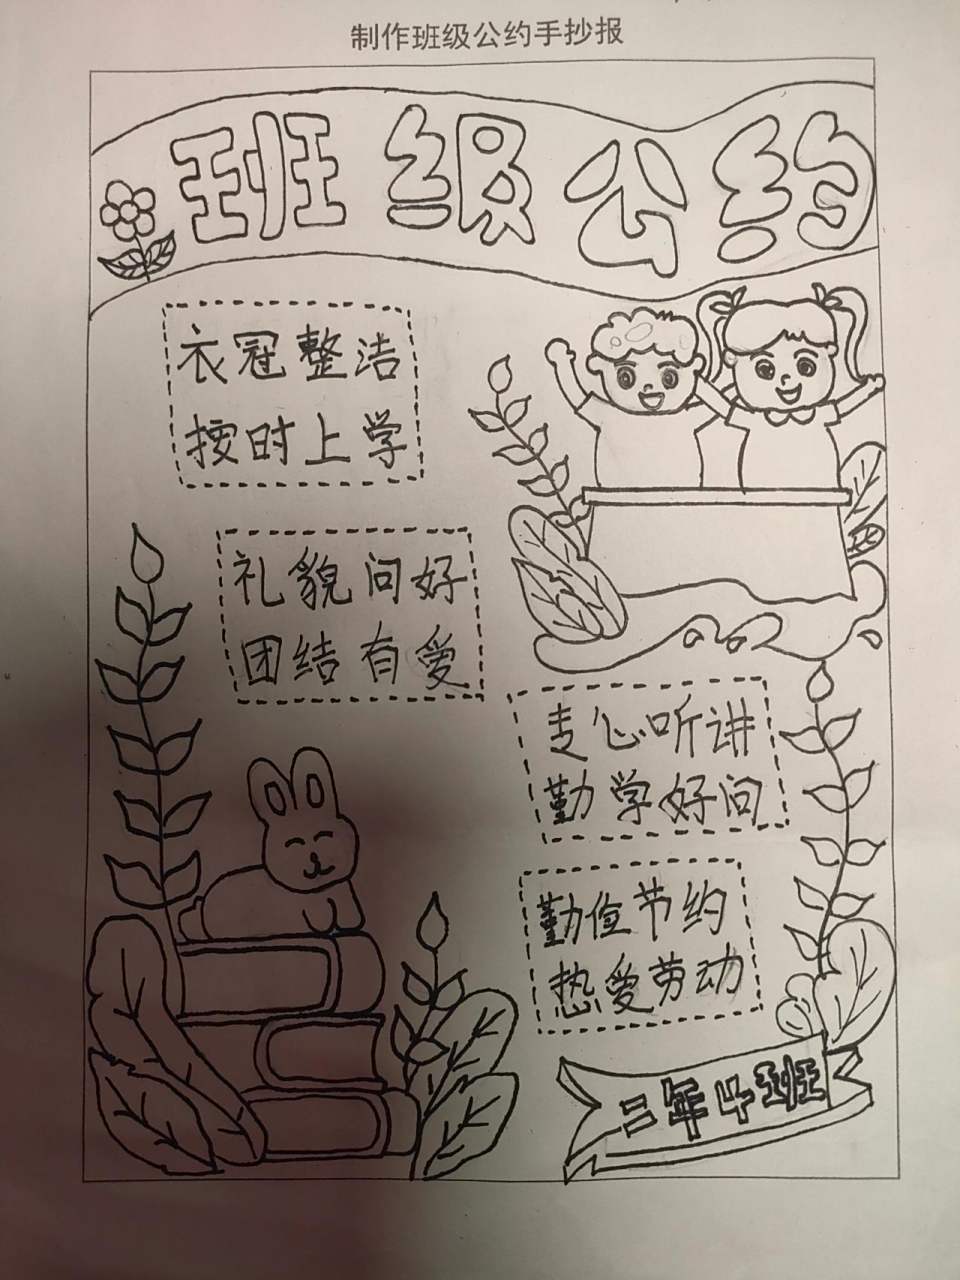 制作班级公约手抄报
班级公约
衣冠整洁
按时上学
礼貌问好
团结有爱
走心听讲
勤学好问
勤俭节约
热爱劳动
三年4班